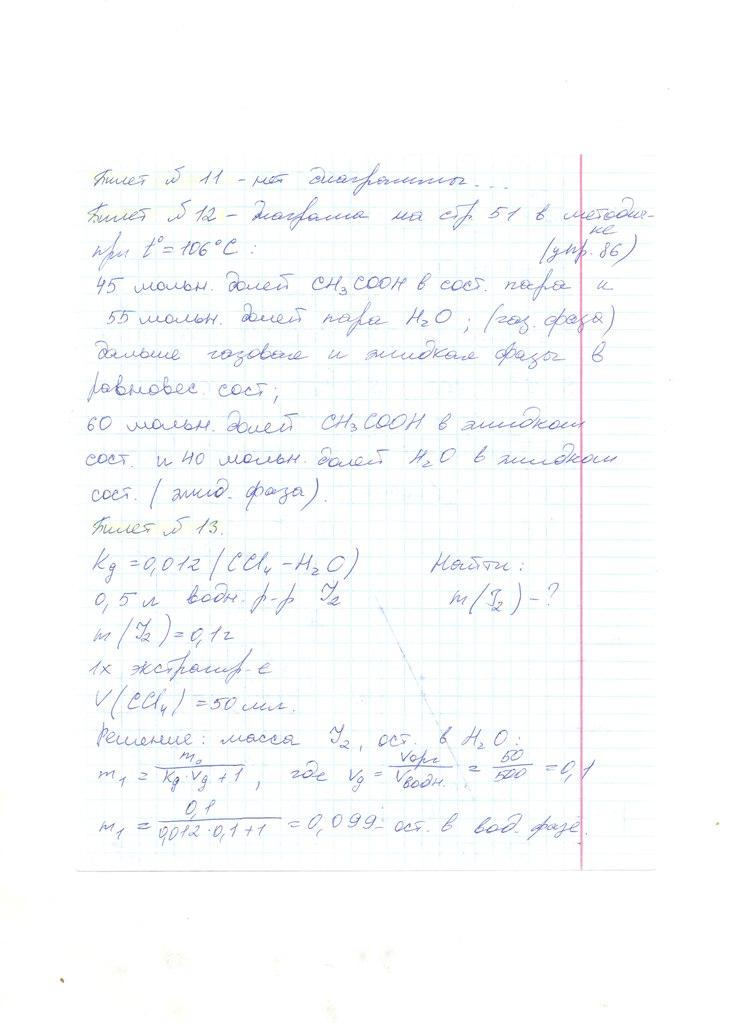 Билет № 11 - нет диаграммы...
Билет № 12 - Диаграма на стр 51 в методич-
ке
при t°=106°C: (упр. 86)
45 мольн. долей CH₃COOH в сост. пара и
55 мольн. долей пара H₂O; (газ. фаза)
дальше газовая и жидкая фазы в
равновес. сост;
60 мольн. долей CH₃COOH в жидком
сост. и 40 мольн. долей H₂O в жидком
сост. (жид. фаза).
Билет № 13.
Kд = 0,012 (CCl₄ - H₂O) Найти:
0,5 л водн. р-р J₂ m(J₂) - ?
m(J₂) = 0,1г
1х экстрагир-е
V(CCl₄) = 50 мл.
Решение: масса J₂, ост. в H₂O:
m₁ = m₀ / (Kд·Vд + 1), где Vд = Vорг / Vводн. = 50/500 = 0,1
m₁ = 0,1 / (0,012·0,1+1) = 0,099 - ост. в вод. фазе.